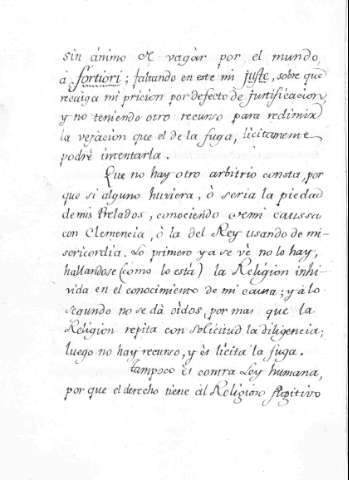 sin ánimo de vagár por el mundo,
á fortiori; faltando en este mi juste, sobre que
recaiga mi pricion por defecto de justificacion,
y no teniendo otro recurso para redimir
la vejacion que el de la fuga, licitamente
podrè intentarla.
Que no hay otro arbitrio consta, por
que si alguno huviera, ò seria la piedad
de mis Prelados, conociendo de mi caussa
con Clemencia, ò la del Rey usando de mi-
sericordia. Lo primero ya se vè no lo hay,
hallandose (como lo està) la Religion inhi-
vida en el conocimiento de mi causa; y à lo
segundo no se dà oìdos, por mas que la
Religion repita con solicitud la diligencia;
luego no hay recurso, y ès licita la fuga.
Tampoco ès contra Ley humana,
por que el derecho tiene àl Religioso fugitivo